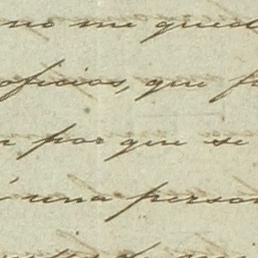 no me qued
oficios, que f
por que se
una person